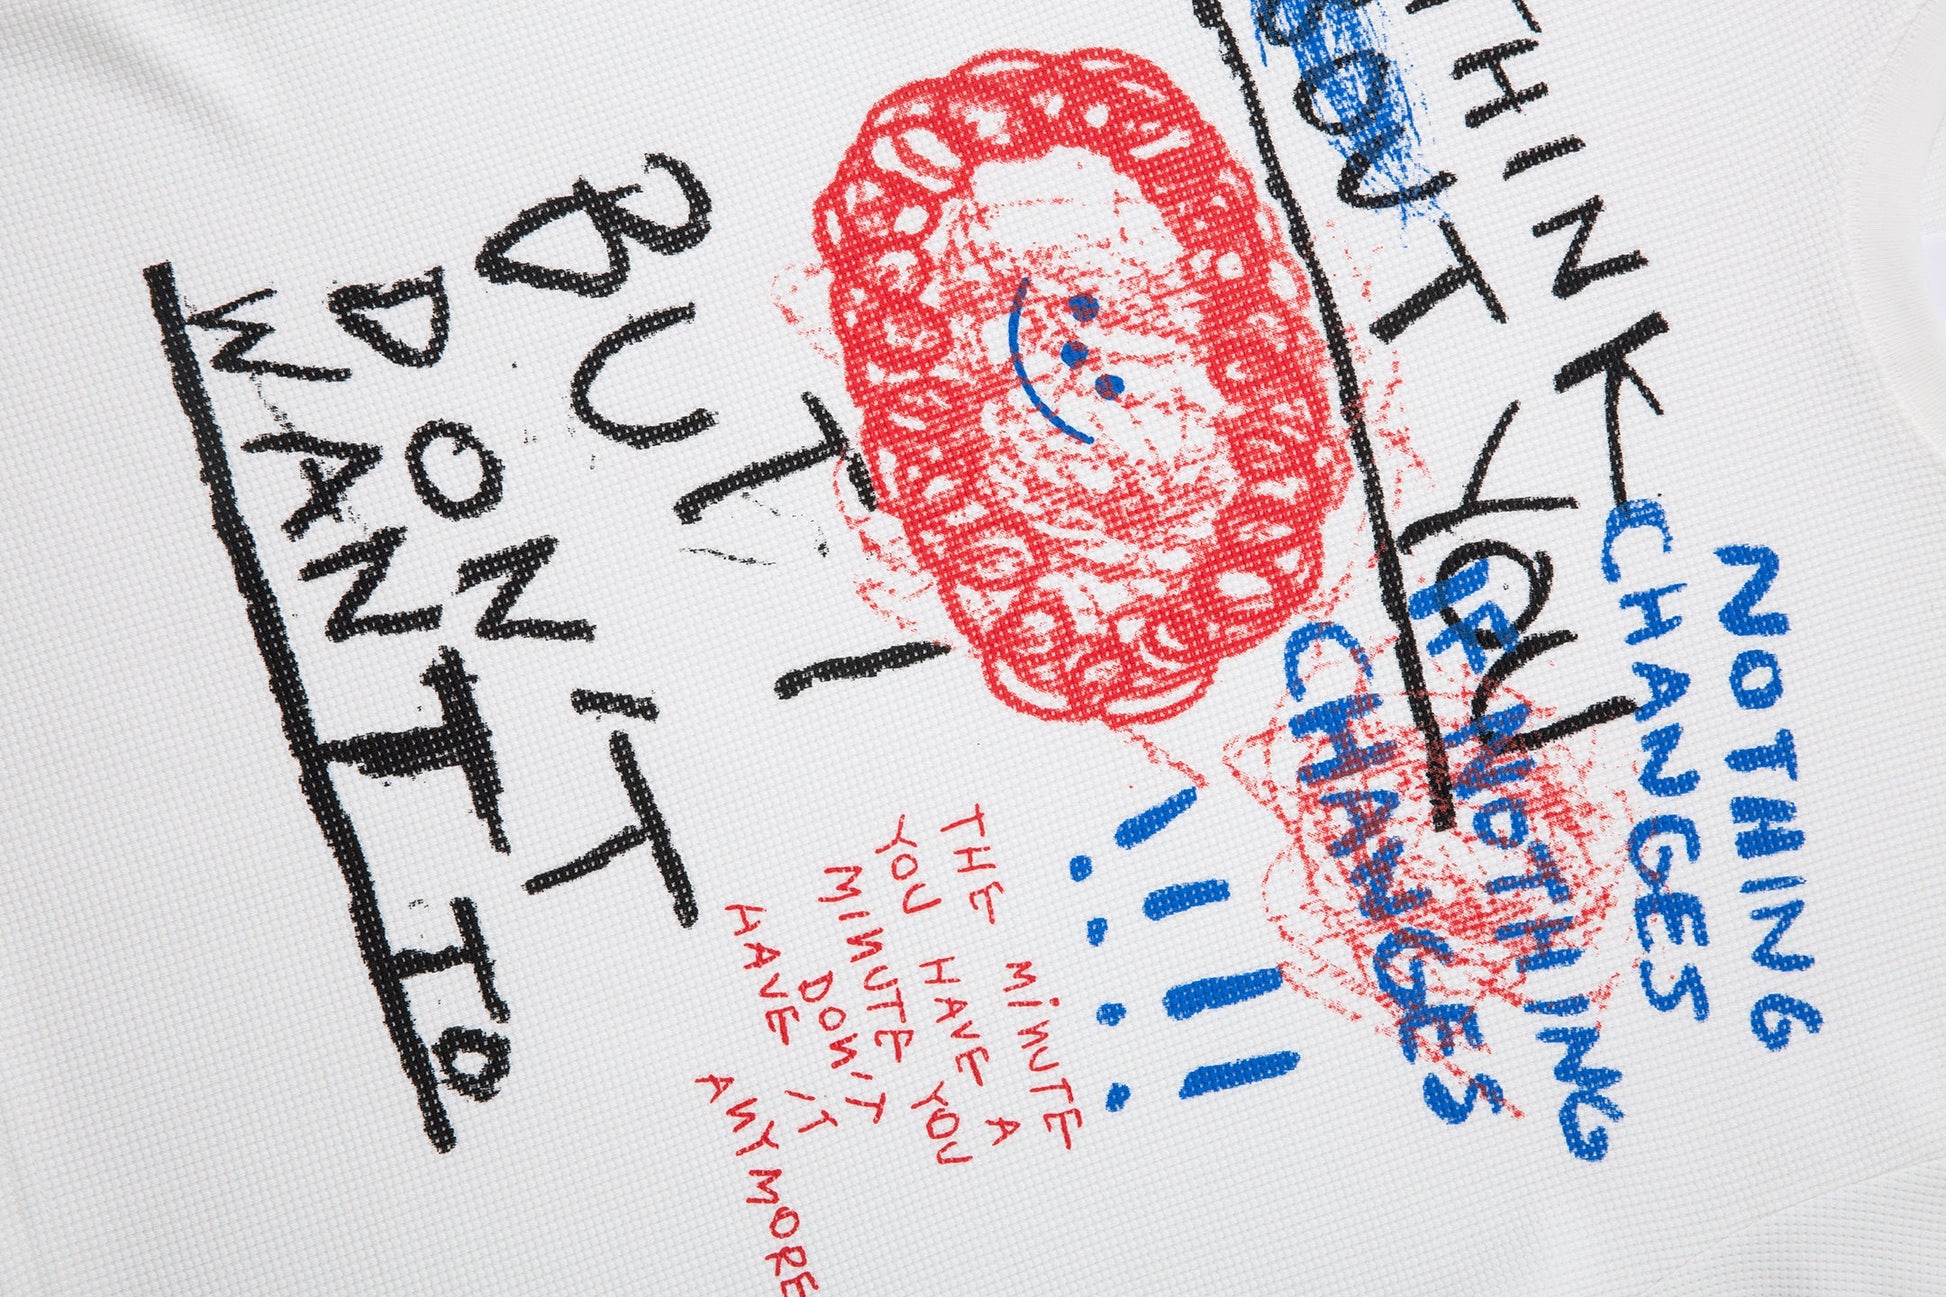 NOTHING
CHANGES
IF NOTHING
CHANGES
!!!!
THINK
BOUT YOU
BUT I
DON'T
WANT TO
THE MINUTE
YOU HAVE A
MINUTE YOU
DON'T
HAVE IT
ANYMORE